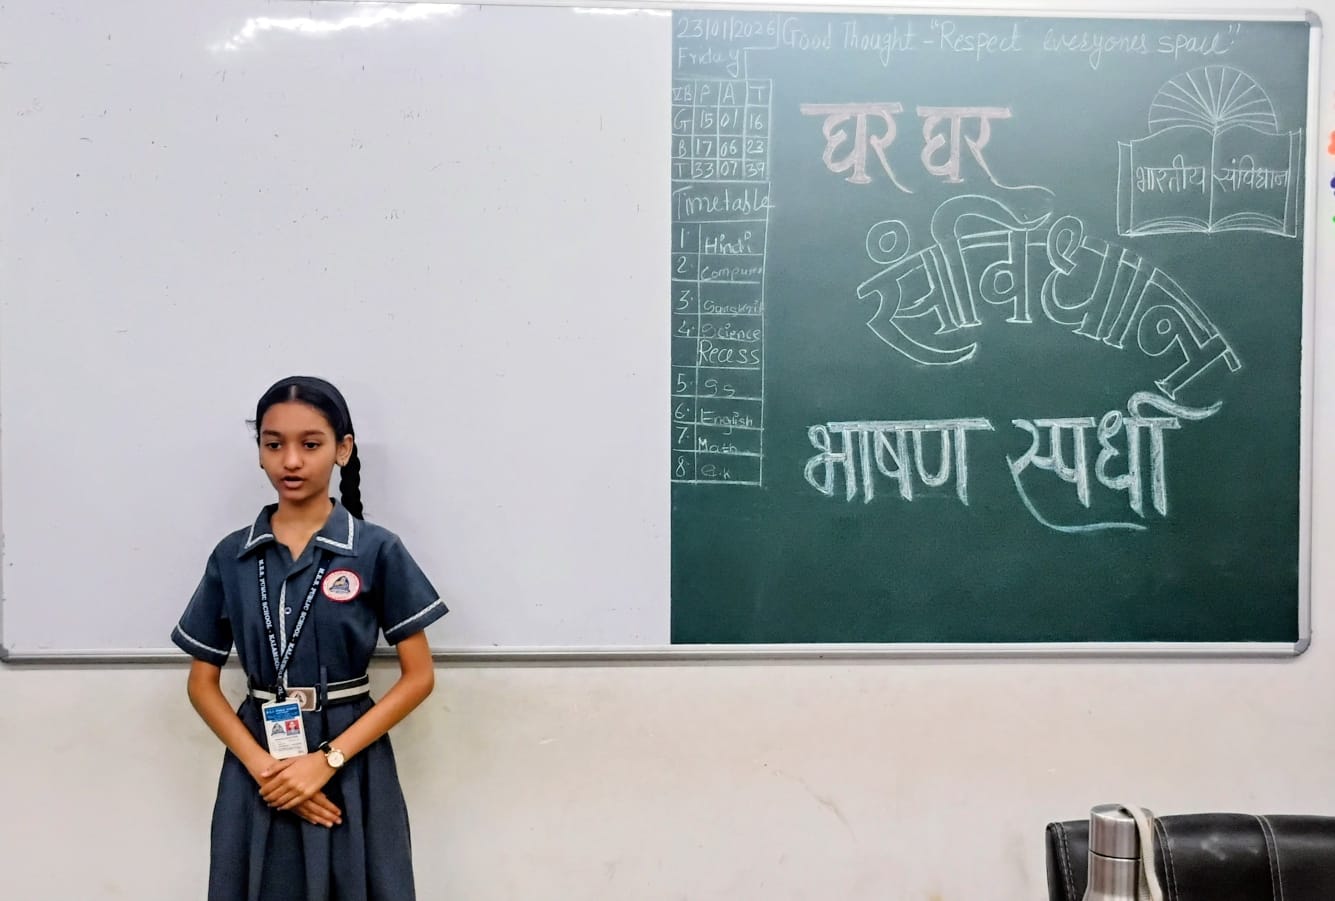 23/01/2026 Good Thought - "Respect everyones space"
Friday
VB P A T
G 15 01 16
B 17 06 23
T 33 07 39
Timetable
1. Hindi
2. Computer
3. Sanskrit
4. Science
Recess
5. SS
6. English
7. Math
8. G.K
घर घर
संविधान
भाषण स्पर्धा
भारतीय संविधान
M.E.S. PUBLIC SCHOOL - KALAMBOLI
M.E.S. PUBLIC SCHOOL